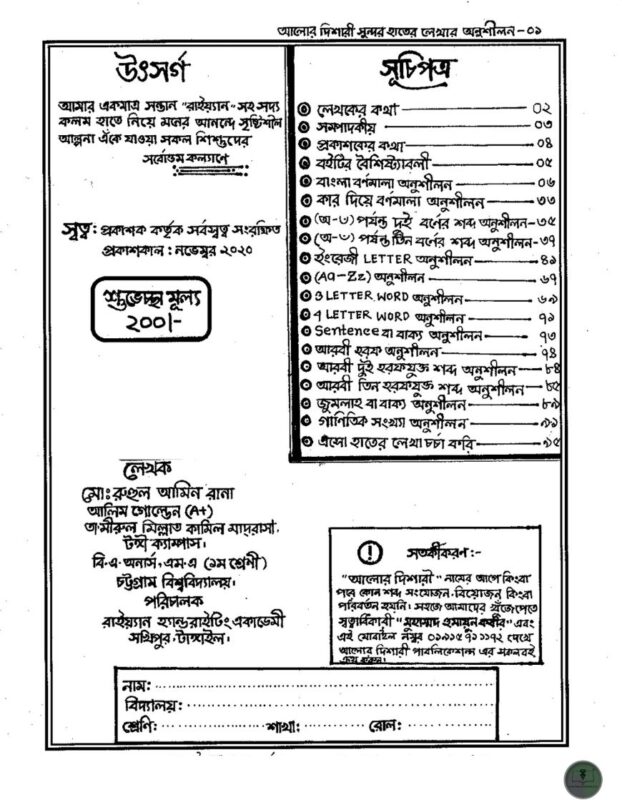 আলোর দিশারী সুন্দর হাতের লেখার অনুশীলন-০১
উৎসর্গ
আমার একমাত্র সন্তান "রাইয়্যান" সহ সদ্য
কলম হাতে নিয়ে মনের আনন্দে সৃষ্টিশীল
আল্পনা এঁকে যাওয়া সকল শিশুদের
সর্বোত্তম কল্যাণে
স্বত্ব: প্রকাশক কর্তৃক সর্বস্বত্ব সংরক্ষিত
প্রকাশকাল: নভেম্বর ২০২০
শুভেচ্ছা মূল্য
২০০/-
সূচিপত্র
লেখকের কথা ০২
সম্পাদকীয় ০৩
প্রকাশকের কথা ০৪
বইটির বৈশিষ্ট্যাবলী ০৫
বাংলা বর্ণমালা অনুশীলন ০৬
কার দিয়ে বর্ণমালা অনুশীলন ৩৩
(অ-ঁ) পর্যন্ত দুই বর্ণের শব্দ অনুশীলন-৩৫
(অ-ঁ) পর্যন্ত তিন বর্ণের শব্দ অনুশীলন-৩৭
ইংরেজী LETTER অনুশীলন ৪১
(Aa-Zz) অনুশীলন ৬৭
3 LETTER WORD অনুশীলন ৬৯
4 LETTER WORD অনুশীলন ৭১
Sentence বা বাক্য অনুশীলন ৭৩
আরবী হরফ অনুশীলন ৭৪
আরবী দুই হরফযুক্ত শব্দ অনুশীলন ৮৪
আরবী তিন হরফযুক্ত শব্দ অনুশীলন ৮৫
জুমলাহ বা বাক্য অনুশীলন ৮৯
গাণিতিক সংখ্যা অনুশীলন ৯১
এসো হাতের লেখা চর্চা করি ৯৫
লেখক
মো: রুহুল আমিন রানা
আলিম গোল্ডেন (A+)
তা'মীরুল মিল্লাত কামিল মাদ্‌রাসা,
টঙ্গী ক্যাম্পাস।
বি.এ. অনার্স, এম.এ (১ম শ্রেণী)
চট্টগ্রাম বিশ্ববিদ্যালয়।
পরিচালক
রাইয়্যান হ্যান্ডরাইটিং একাডেমী
সখিপুর, টাঙ্গাইল।
সতর্কীকরণ :-
"আলোর দিশারী" নামের আগে কিংবা
পরে কোন শব্দ সংযোজন, বিয়োজন, কিংবা
পরিবর্তন হয়নি। সহজে আমাদের খুঁজে পেতে
সত্ত্বাধিকারী "মুহাম্মাদ হুমায়ুন কবীর" এবং
এই মোবাইল নম্বর ০১৯১৫৭১১১৭২ দেখে
আলোর দিশারী পাবলিকেশন্স এর সকল বই
ক্রয় করুন।
নাম:
বিদ্যালয়:
শ্রেণি: শাখা: রোল: